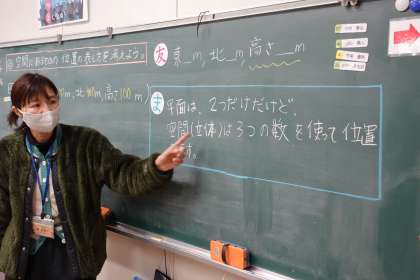 空間にあるものの位置の表し方を考えよう。
友 東__m, 北__m, 高さ__m
m, 北 m, 高さ100m)
ま 平面は、2つだけだけど、
空間(立体)は3つの数を使って位置
す。